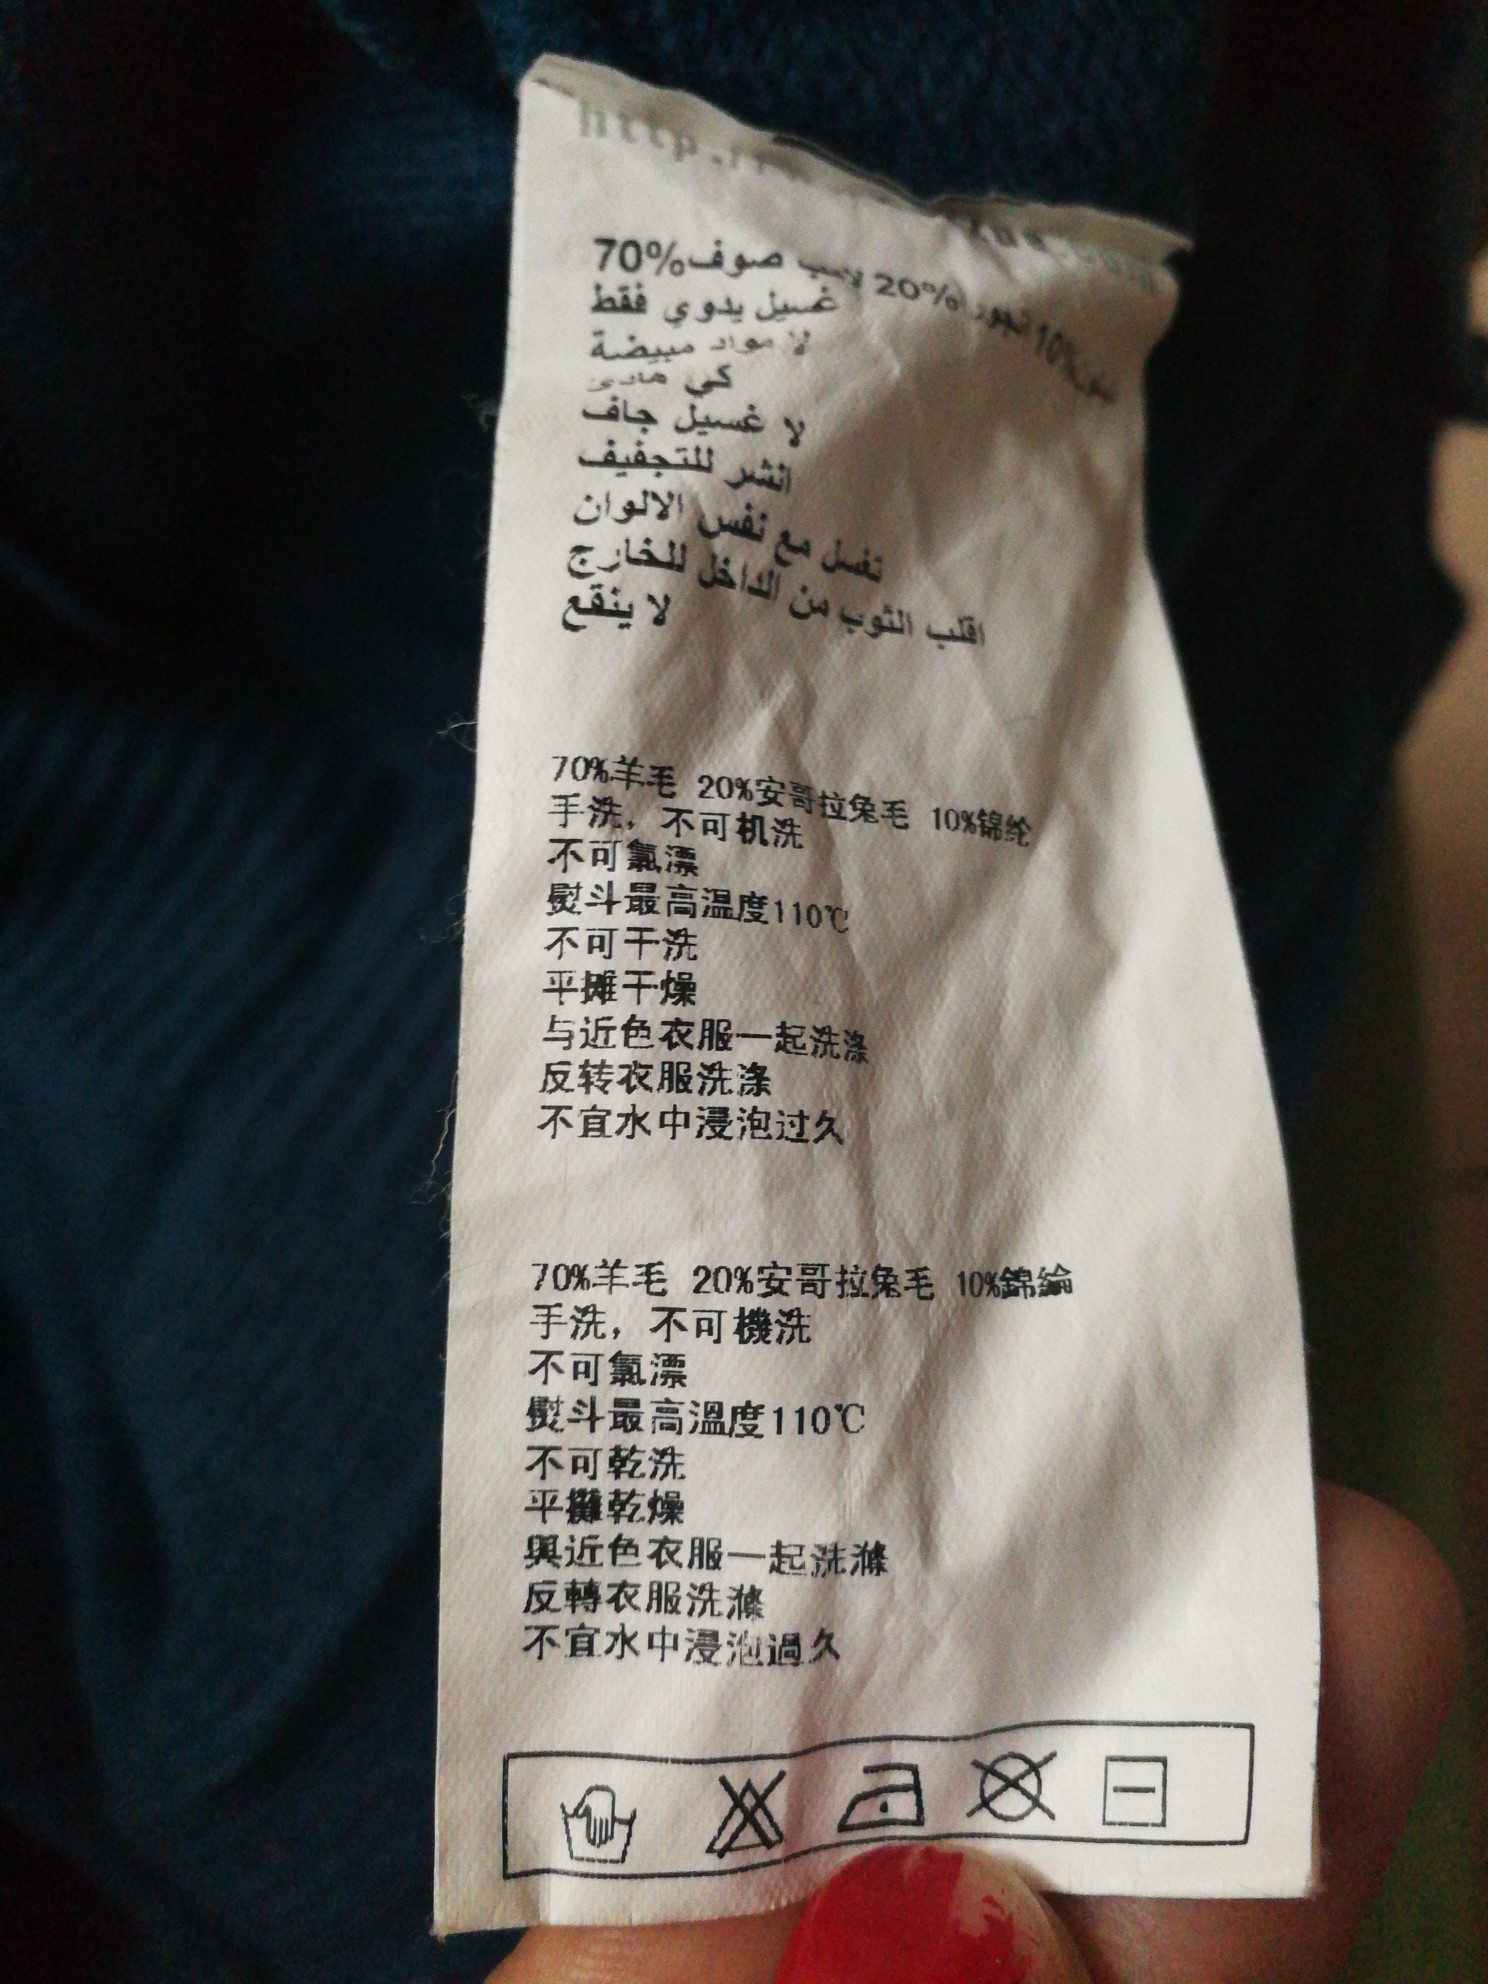 http:/
صوف%70 20% 10%
غسيل يدوي فقط
لا مواد مبيضة
كي هادئ
لا غسيل جاف
انشر للتجفيف
تغسل مع نفس الالوان
اقلب الثوب من الداخل للخارج
لا ينقع
70%羊毛 20%安哥拉兔毛 10%锦纶
手洗，不可机洗
不可氯漂
熨斗最高温度110℃
不可干洗
平摊干燥
与近色衣服一起洗涤
反转衣服洗涤
不宜水中浸泡过久
70%羊毛 20%安哥拉兔毛 10%錦綸
手洗，不可機洗
不可氯漂
熨斗最高溫度110℃
不可乾洗
平攤乾燥
與近色衣服一起洗滌
反轉衣服洗滌
不宜水中浸泡過久